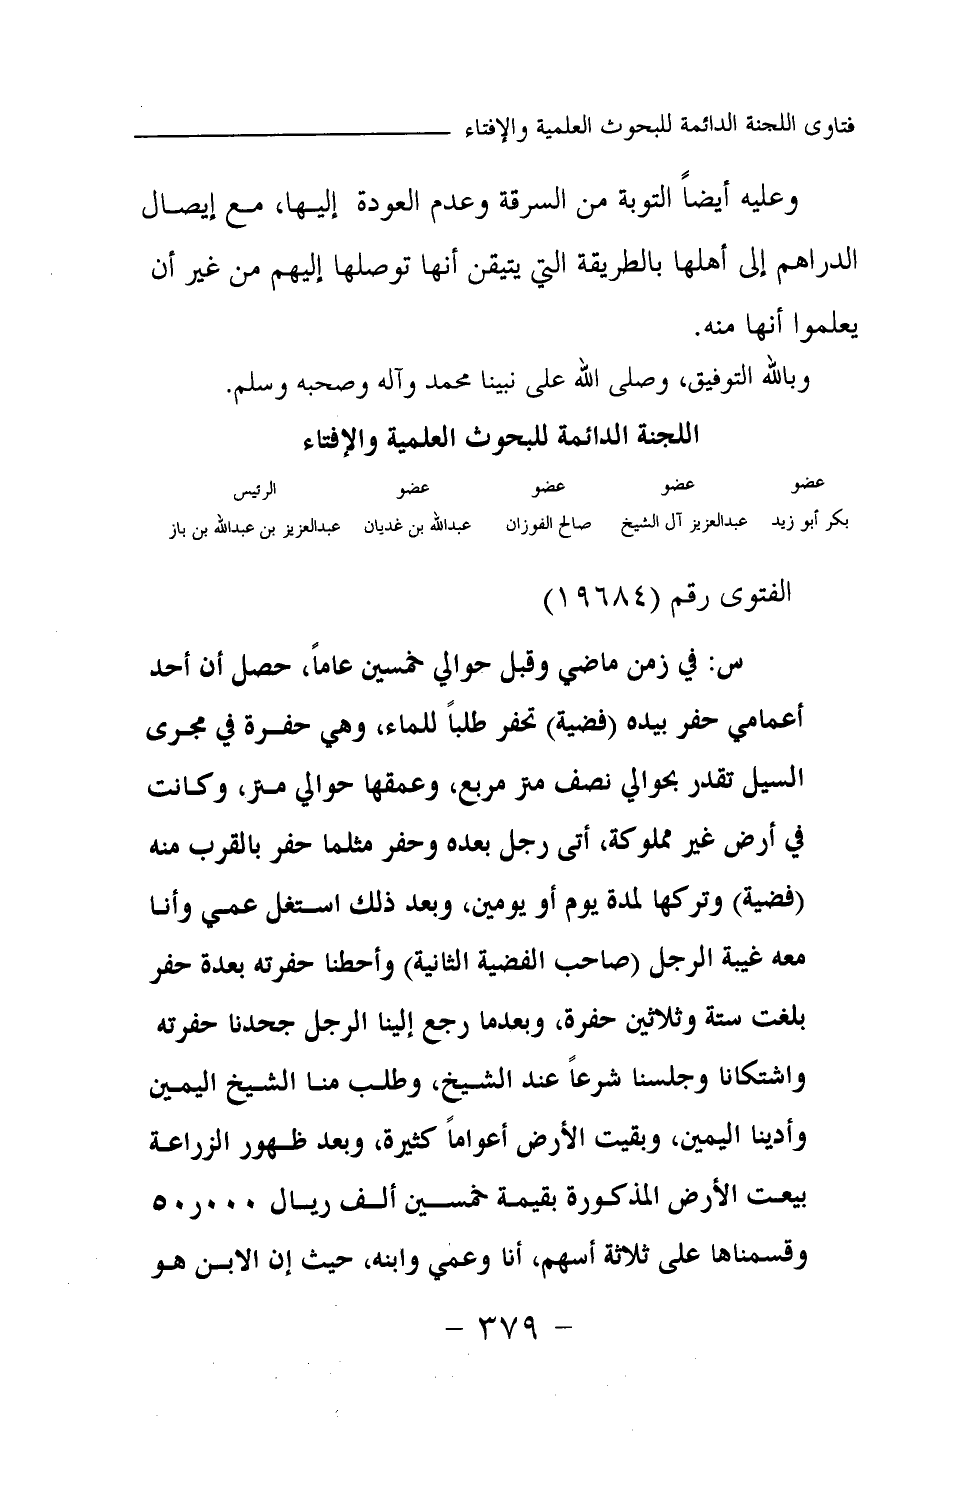 فتاوى اللجنة الدائمة للبحوث العلمية والإفتاء
وعليه أيضاً التوبة من السرقة وعدم العودة إليها، مع إيصال
الدراهم إلى أهلها بالطريقة التي يتيقن أنها توصلها إليهم من غير أن
يعلموا أنها منه.
وبالله التوفيق، وصلى الله على نبينا محمد وآله وصحبه وسلم.
اللجنة الدائمة للبحوث العلمية والإفتاء
عضو عضو عضو عضو الرئيس
بكر أبو زيد عبدالعزيز آل الشيخ صالح الفوزان عبدالله بن غديان عبدالعزيز بن عبدالله بن باز
الفتوى رقم (١٩٦٨٤)
س: في زمن ماضي وقبل حوالي خمسين عاماً، حصل أن أحد
أعمامي حفر بيده (فضية) تحفر طلباً للماء، وهي حفرة في مجرى
السيل تقدر بحوالي نصف متر مربع، وعمقها حوالي متر، وكانت
في أرض غير مملوكة، أتى رجل بعده وحفر مثلما حفر بالقرب منه
(فضية) وتركها لمدة يوم أو يومين، وبعد ذلك استغل عمي وأنا
معه غيبة الرجل (صاحب الفضية الثانية) وأحطنا حفرته بعدة حفر
بلغت ستة وثلاثين حفرة، وبعدما رجع إلينا الرجل جحدنا حفرته
واشتكانا وجلسنا شرعاً عند الشيخ، وطلب منا الشيخ اليمين
وأدينا اليمين، وبقيت الأرض أعواماً كثيرة، وبعد ظهور الزراعة
بيعت الأرض المذكورة بقيمة خمسين ألف ريال ٥٠ر٠٠٠
وقسمناها على ثلاثة أسهم، أنا وعمي وابنه، حيث إن الابن هو
- ٣٧٩ -